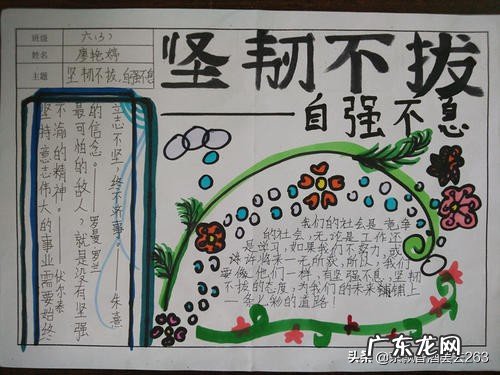 班级 六(3)
姓名 廖艳婷
主题 坚韧不拔,自强不息
坚韧不拔
——自强不息
坚持意志伟大的事业需要始终
不渝的精神。——伏尔泰
最可怕的敌人,就是没有坚强
的信念。——罗曼·罗兰
立志不坚,终不济事。——朱熹
我们的社会是竞争
的社会,无论是工作还
是学习,如果我们不努力,或
许将来一无所获,所以,我们
要像他们一样,有坚强不息,坚韧
不拔的态度,为我们的未来铺上
一条人物的道路!
头条
263
广东龙网